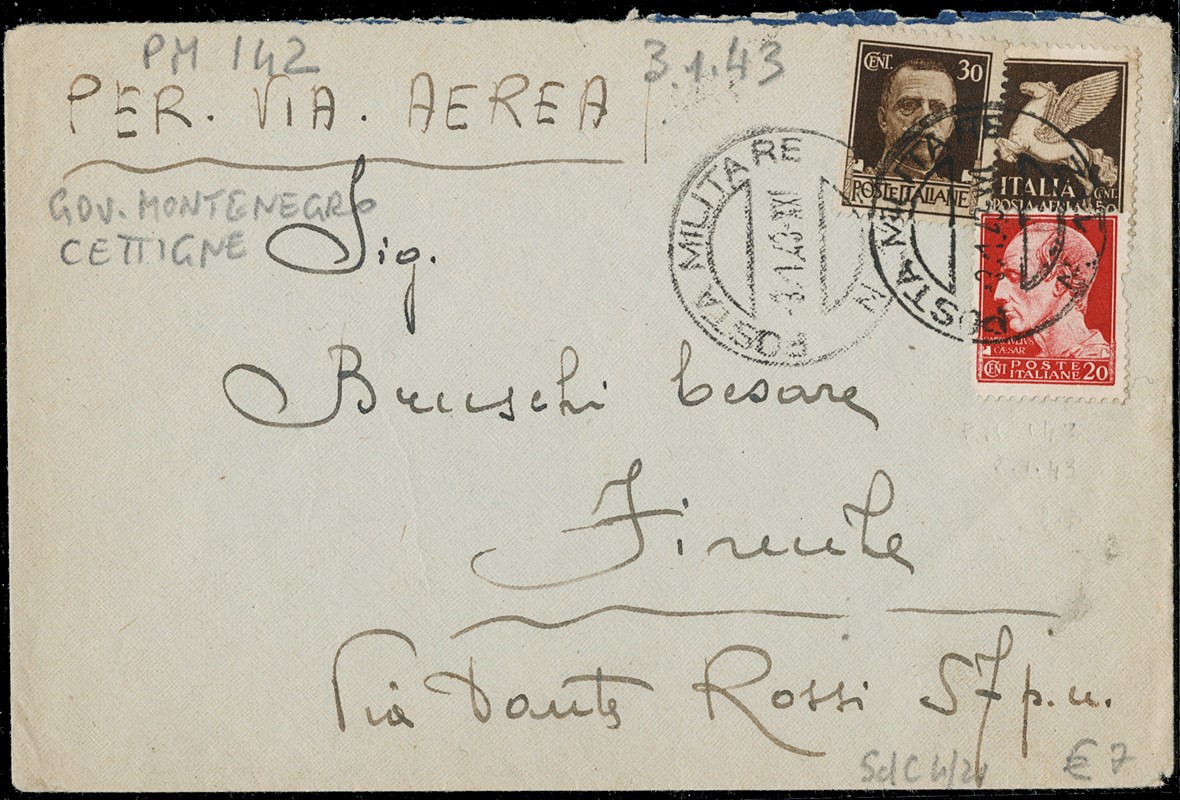 PM 142
3.1.43
PER. VIA. AEREA
GOV. MONTENEGRO
CETTIGNE
Sig.
Bruschi Cesare
Firenze
Via Dante Rossi 57 p.u.
CENT. 30
POSTE ITALIANE
ITALIA
POSTA AEREA
CENT. 50
IVLIVS
CÆSAR
CENT POSTE ITALIANE 20
POSTA MILITARE N
3.1.43.XXI
POSTA MILITARE N.
2.1.43
€ 7